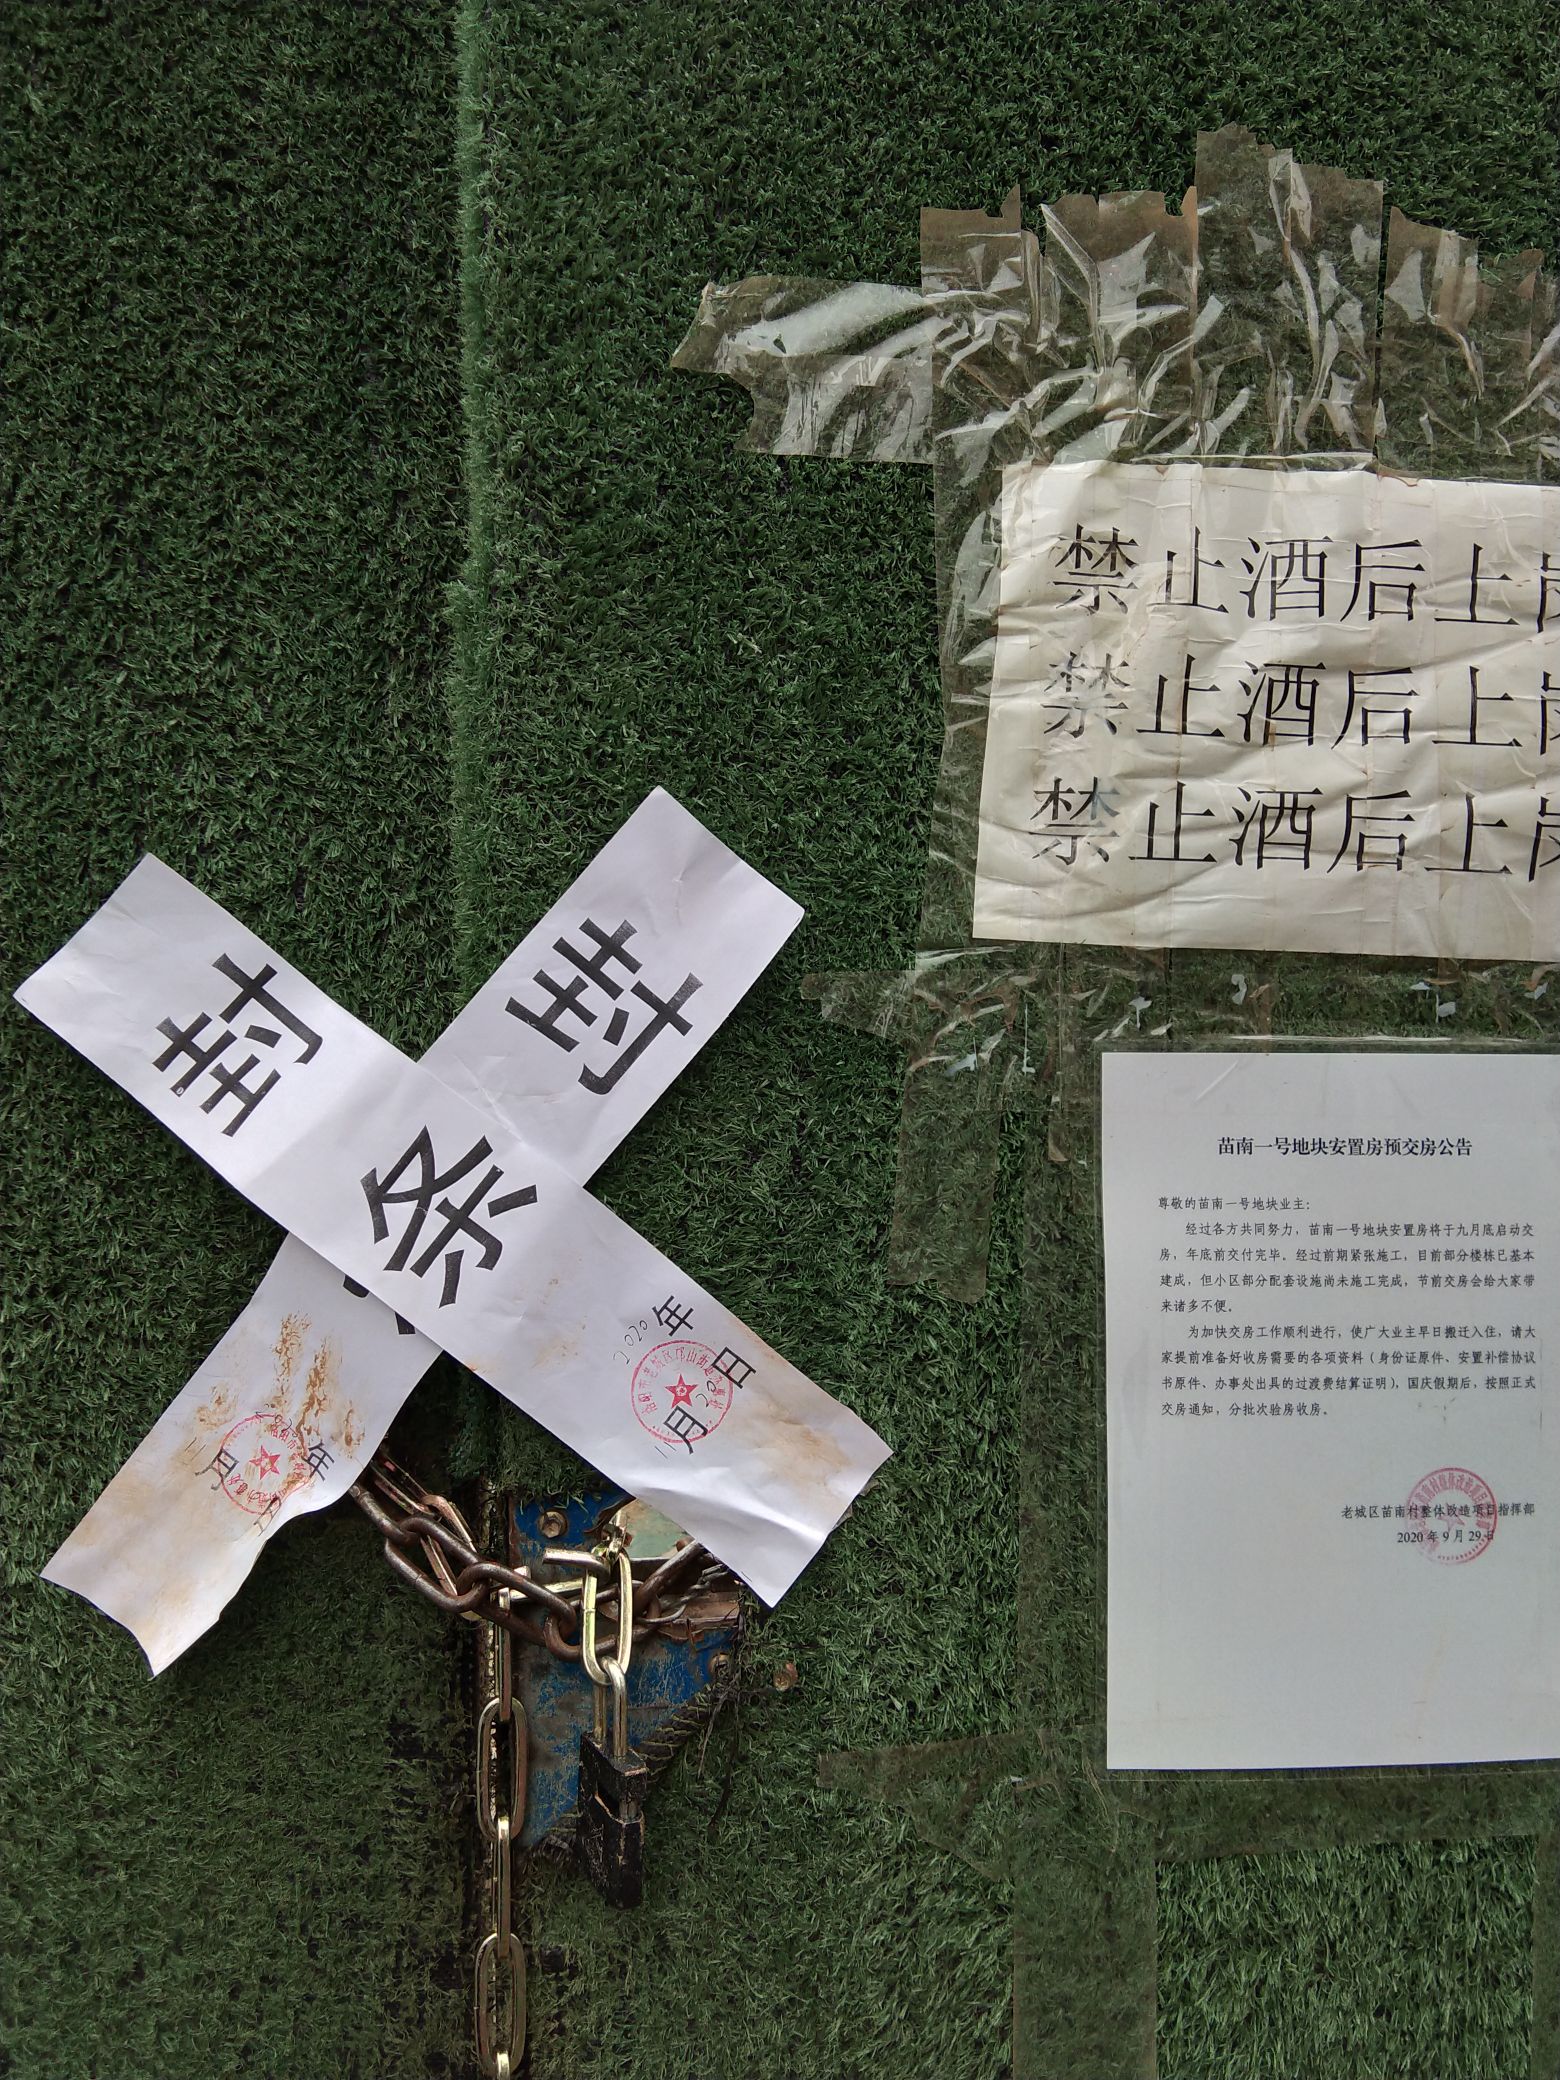 禁止酒后上岗
禁止酒后上岗
禁止酒后上岗
封
封条
2020年
二月20日
二月
年
苗南一号地块安置房预交房公告
尊敬的苗南一号地块业主：
经过各方共同努力，苗南一号地块安置房将于九月底启动交
房，年底前交付完毕。经过前期紧张施工，目前部分楼栋已基本
建成，但小区部分配套设施尚未施工完成，节前交房会给大家带
来诸多不便。
为加快交房工作顺利进行，使广大业主早日搬迁入住，请大
家提前准备好收房需要的各项资料（身份证原件、安置补偿协议
书原件、办事处出具的过渡费结算证明），国庆假期后，按照正式
交房通知，分批次验房收房。
老城区苗南村整体改造项目指挥部
2020年9月29日